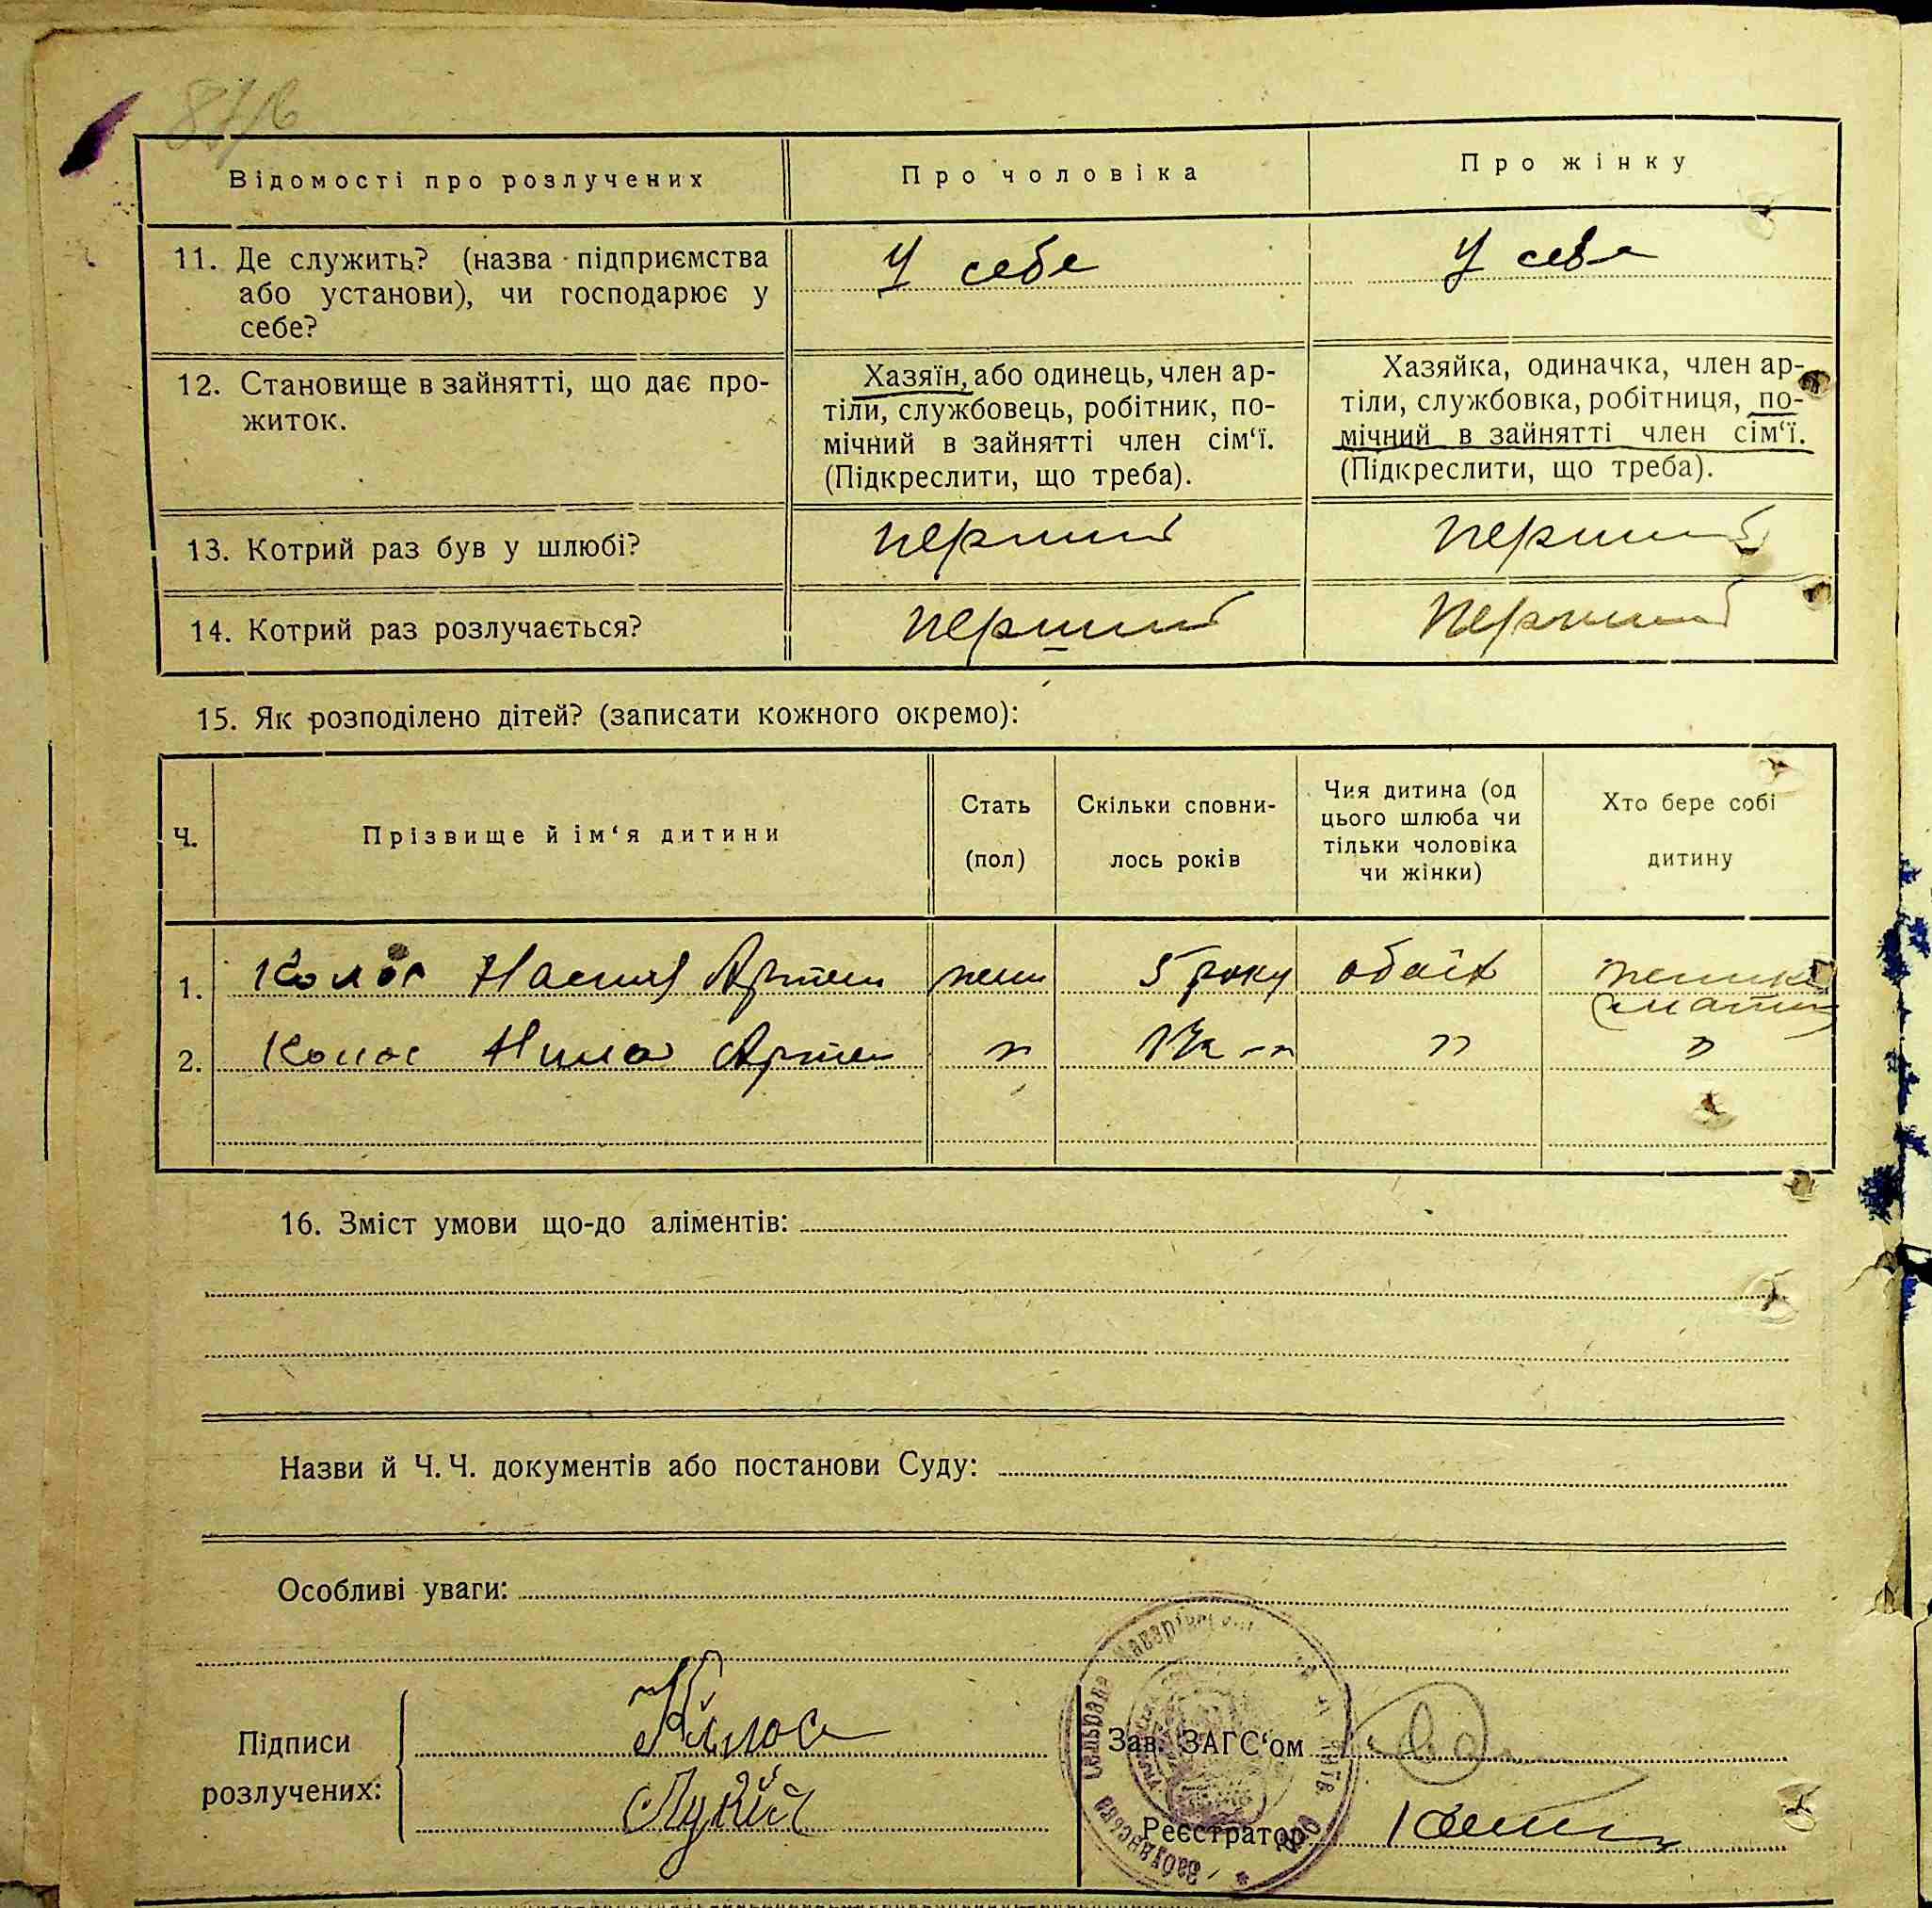 Відомості про розлучених
Про чоловіка
Про жінку
11. Де служить? (назва підприємства
або установи), чи господарює у
себе?
У себе
У себе
12. Становище в зайнятті, що дає про-
житок.
Хазяїн, або одинець, член ар-
тіли, службовець, робітник, по-
мічний в зайнятті член сім‘ї.
(Підкреслити, що треба).
Хазяйка, одиначка, член ар-
тіли, службовка, робітниця, по-
мічний в зайнятті член сім‘ї.
(Підкреслити, що треба).
13. Котрий раз був у шлюбі?
перший
перший
14. Котрий раз розлучається?
перший
перший
15. Як розподілено дітей? (записати кожного окремо):
Ч.
Прізвище й ім‘я дитини
Стать
(пол)
Скільки сповни-
лось років
Чия дитина (од
цього шлюба чи
тільки чоловіка
чи жінки)
Хто бере собі
дитину
1. Колос Настя Артем жін 5 року обоїх
(мати)
2. Колос Нила Артем " " "
16. Зміст умови що-до аліментів:
Назви й Ч. Ч. документів або постанови Суду:
Особливі уваги:
Підписи
розлучених:
Колос
Зав. ЗАГС‘ом
Реєстратор